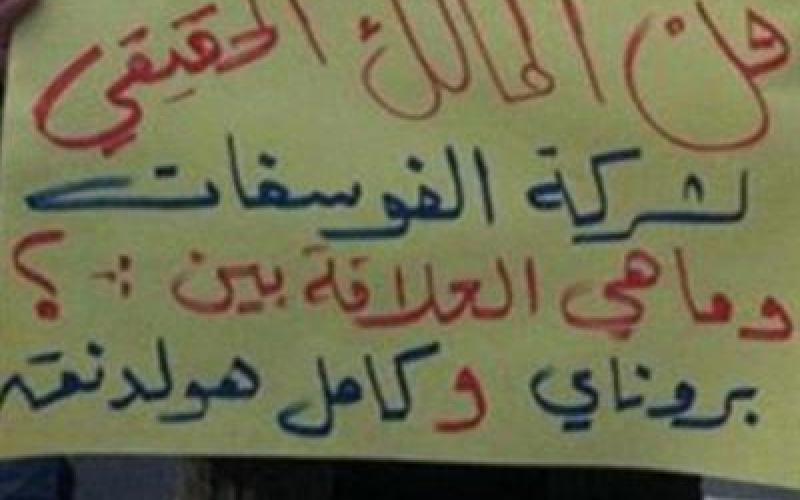 من المالك الحقيقي
لشركة الفوسفات
وما هي العلاقة بين :- ؟
بروناي وكامل هولدنغز